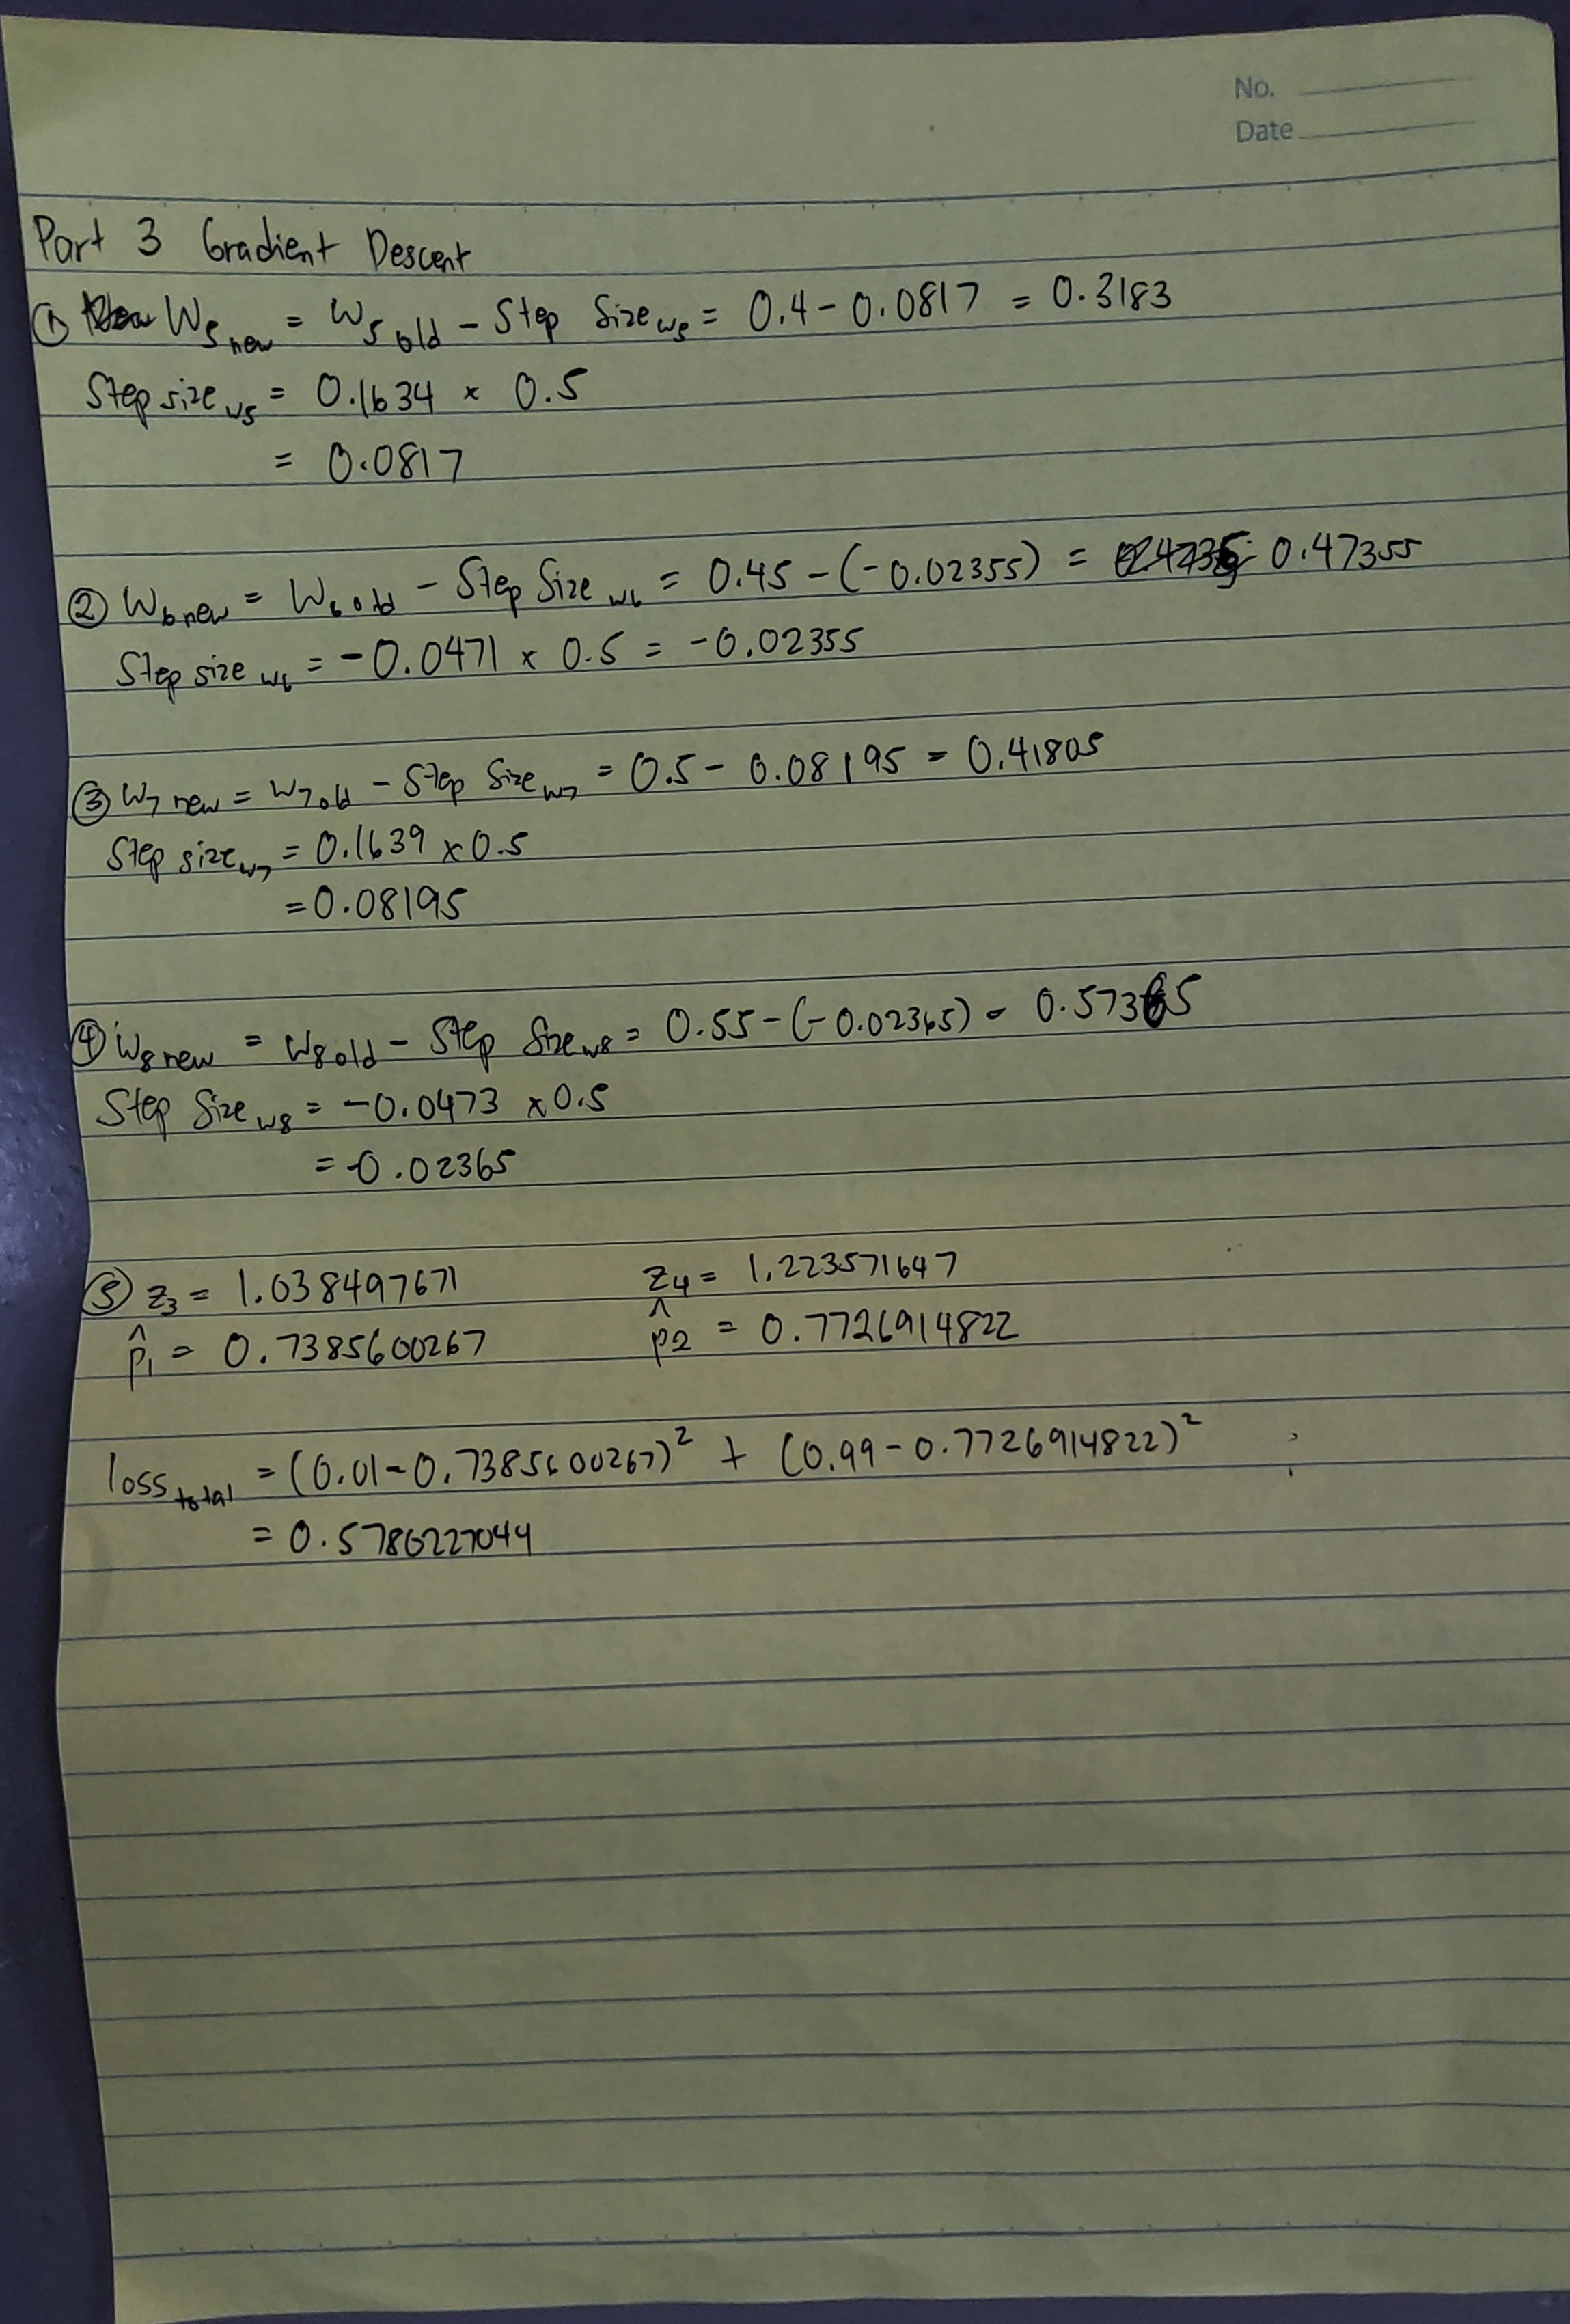 No.
Date
Part 3 Gradient Descent
① W5 new = W5 old - Step Size w5 = 0.4 - 0.0817 = 0.3183
Step size w5 = 0.1634 x 0.5
= 0.0817
② W6 new = W6 old - Step Size w6 = 0.45 - (-0.02355) = 0.47355
Step size w6 = -0.0471 x 0.5 = -0.02355
③ W7 new = W7 old - Step Size w7 = 0.5 - 0.08195 = 0.41805
Step size w7 = 0.1639 x 0.5
= 0.08195
④ W8 new = W8 old - Step Size w8 = 0.55 - (-0.02365) = 0.57365
Step Size w8 = -0.0473 x 0.5
= -0.02365
⑤ z3 = 1.038497671 z4 = 1.223571647
p̂1 = 0.7385600267 p̂2 = 0.7726914822
loss total = (0.01 - 0.7385600267)² + (0.99 - 0.7726914822)²
= 0.5780227044